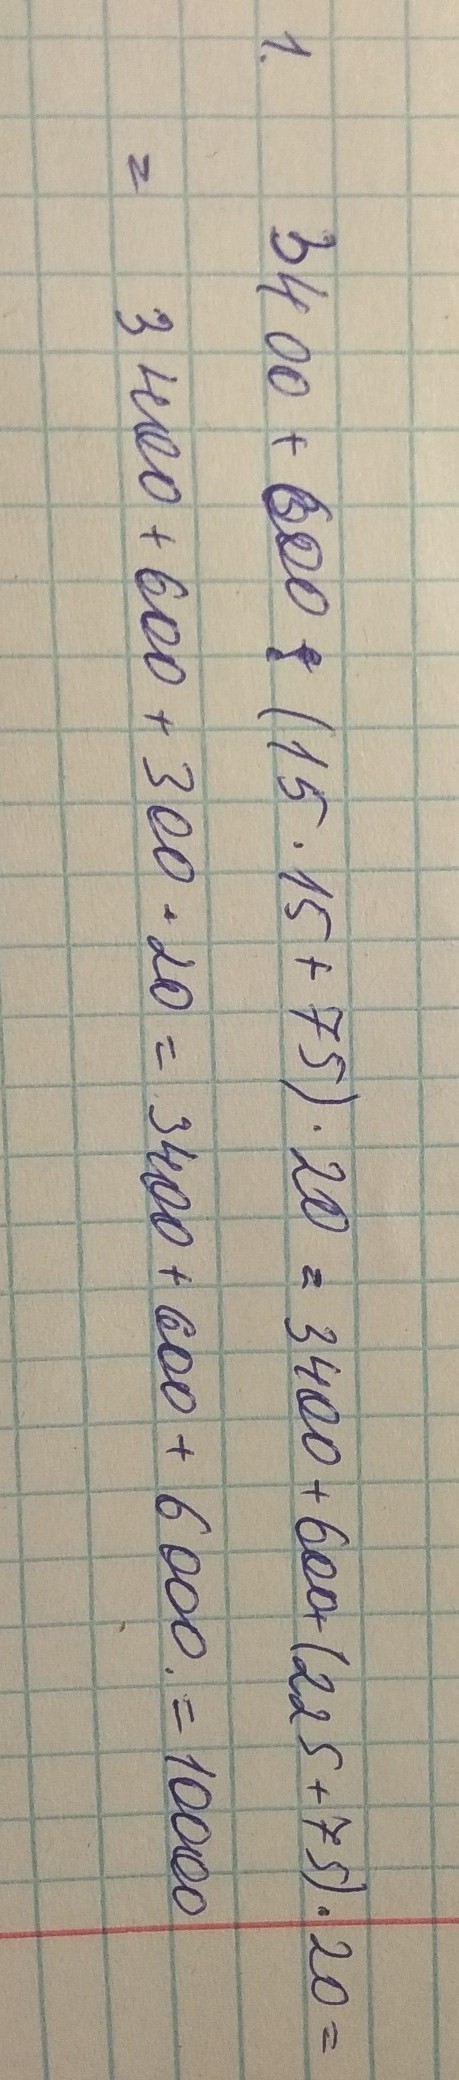 1. 3400 + 600 : (15 · 15 + 75) · 20 = 3400 + 600 + (225 + 75) · 20 =
= 3400 + 600 + 300 · 20 = 3400 + 600 + 6000. = 10000